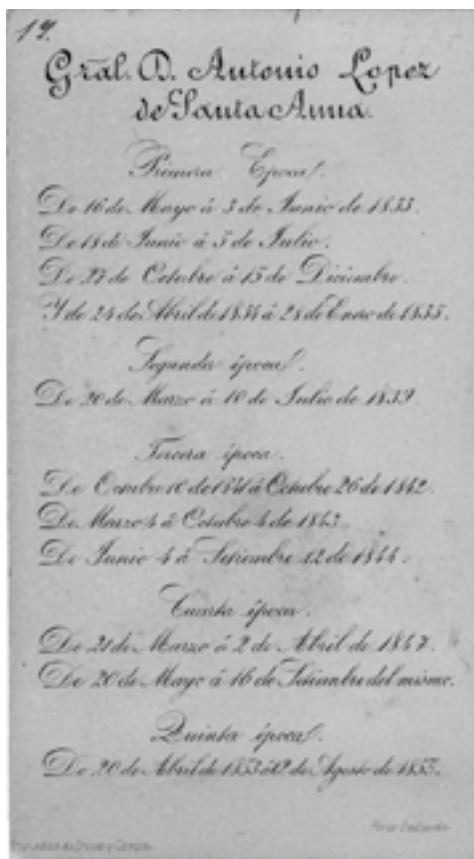 19.
Gral. D. Antonio Lopez
de Santa Anna.
Primera Epoca.
De 16 de Mayo á 3 de Junio de 1833.
De 18 de Junio á 5 de Julio.
De 27 de Octubre á 15 de Diciembre.
Y de 24 de Abril de 1834 á 28 de Enero de 1835.
Segunda época.
De 20 de Marzo á 10 de Julio de 1839
Tercera época.
De Octubre 10 de 1841 á Octubre 26 de 1842.
De Marzo 4 á Octubre 4 de 1843.
De Junio 4 á Setiembre 12 de 1844.
Cuarta época.
De 21 de Marzo á 2 de Abril de 1847.
De 20 de Mayo á 16 de Setiembre del mismo.
Quinta época.
De 20 de Abril de 1853 á 12 de Agosto de 1855.
Propiedad de Cruces y Campa.